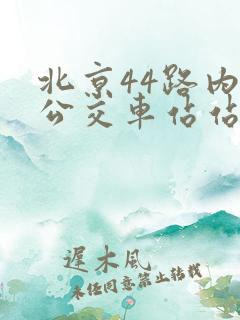 北京44路内
公交车佔佔
遲木风
未经同意禁止转载